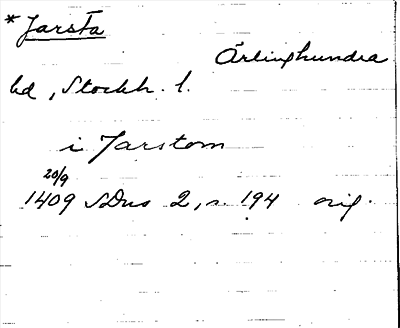 *Jarsta
Ärlinghundra
hd, Stockh. l.
i Jarstom
20/9
1409 SDns 2, s. 194 orig.